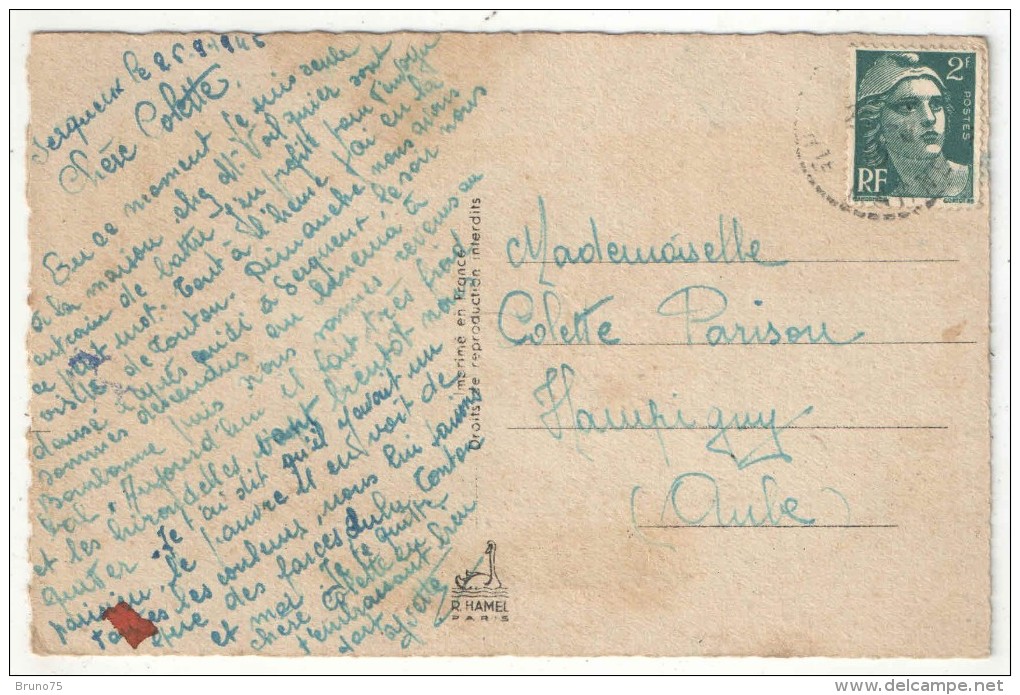 Serqueux le 25.9.1946
Chère Colette.
En ce moment je suis seule
à la maison, chez Mr
sont
entrain de battre j'en profit pour t'envoyer
ce petit mot. Tout à l'heure j'ai eu la
visite de Tonton. Dimanche nous avons
dansé l'après midi à Serqueux le soir nous
sommes descendus au cinéma à
Bourbonne puis nous sommes revenus au
bal. Aujourd'hui il fait très froid
et les hirondelles vont bientôt nous
quitter. Je t'ai dit qu'il y avait un
parisien, le pauvre il en voit de
toutes les couleurs, nous lui faisons
que des farces, Lulu, Tonton
et moi. Je te quitte
chère Colette en
t'embrassant bien
fort
Imprimé en France
Droits de reproduction interdits
R. HAMEL
PARIS
2F
POSTES
RF
Mademoiselle
Colette Parison
Hampigny
(Aube)
Bruno75
www.delcampe.net